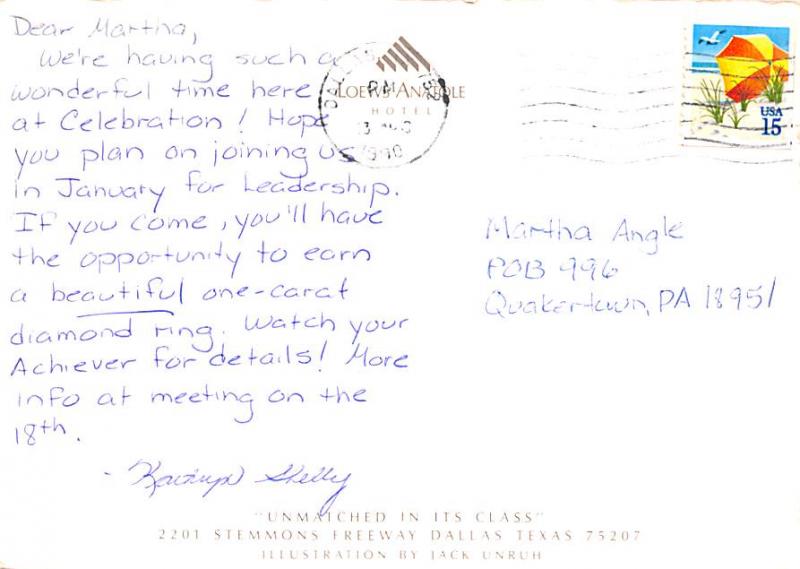 Dear Martha,
We're having such a
wonderful time here
at Celebration! Hope
you plan on joining us
in January for Leadership.
If you come, you'll have
the opportunity to earn
a beautiful one-carat
diamond ring. Watch your
Achiever for details! More
info at meeting on the
18th.
- Shelly
LOEWS ANATOLE
HOTEL
PM
1990
USA
15
Martha Angle
POB 996
Quakertown, PA 18951
"UNMATCHED IN ITS CLASS"
2201 STEMMONS FREEWAY DALLAS TEXAS 75207
ILLUSTRATION BY JACK UNRUH